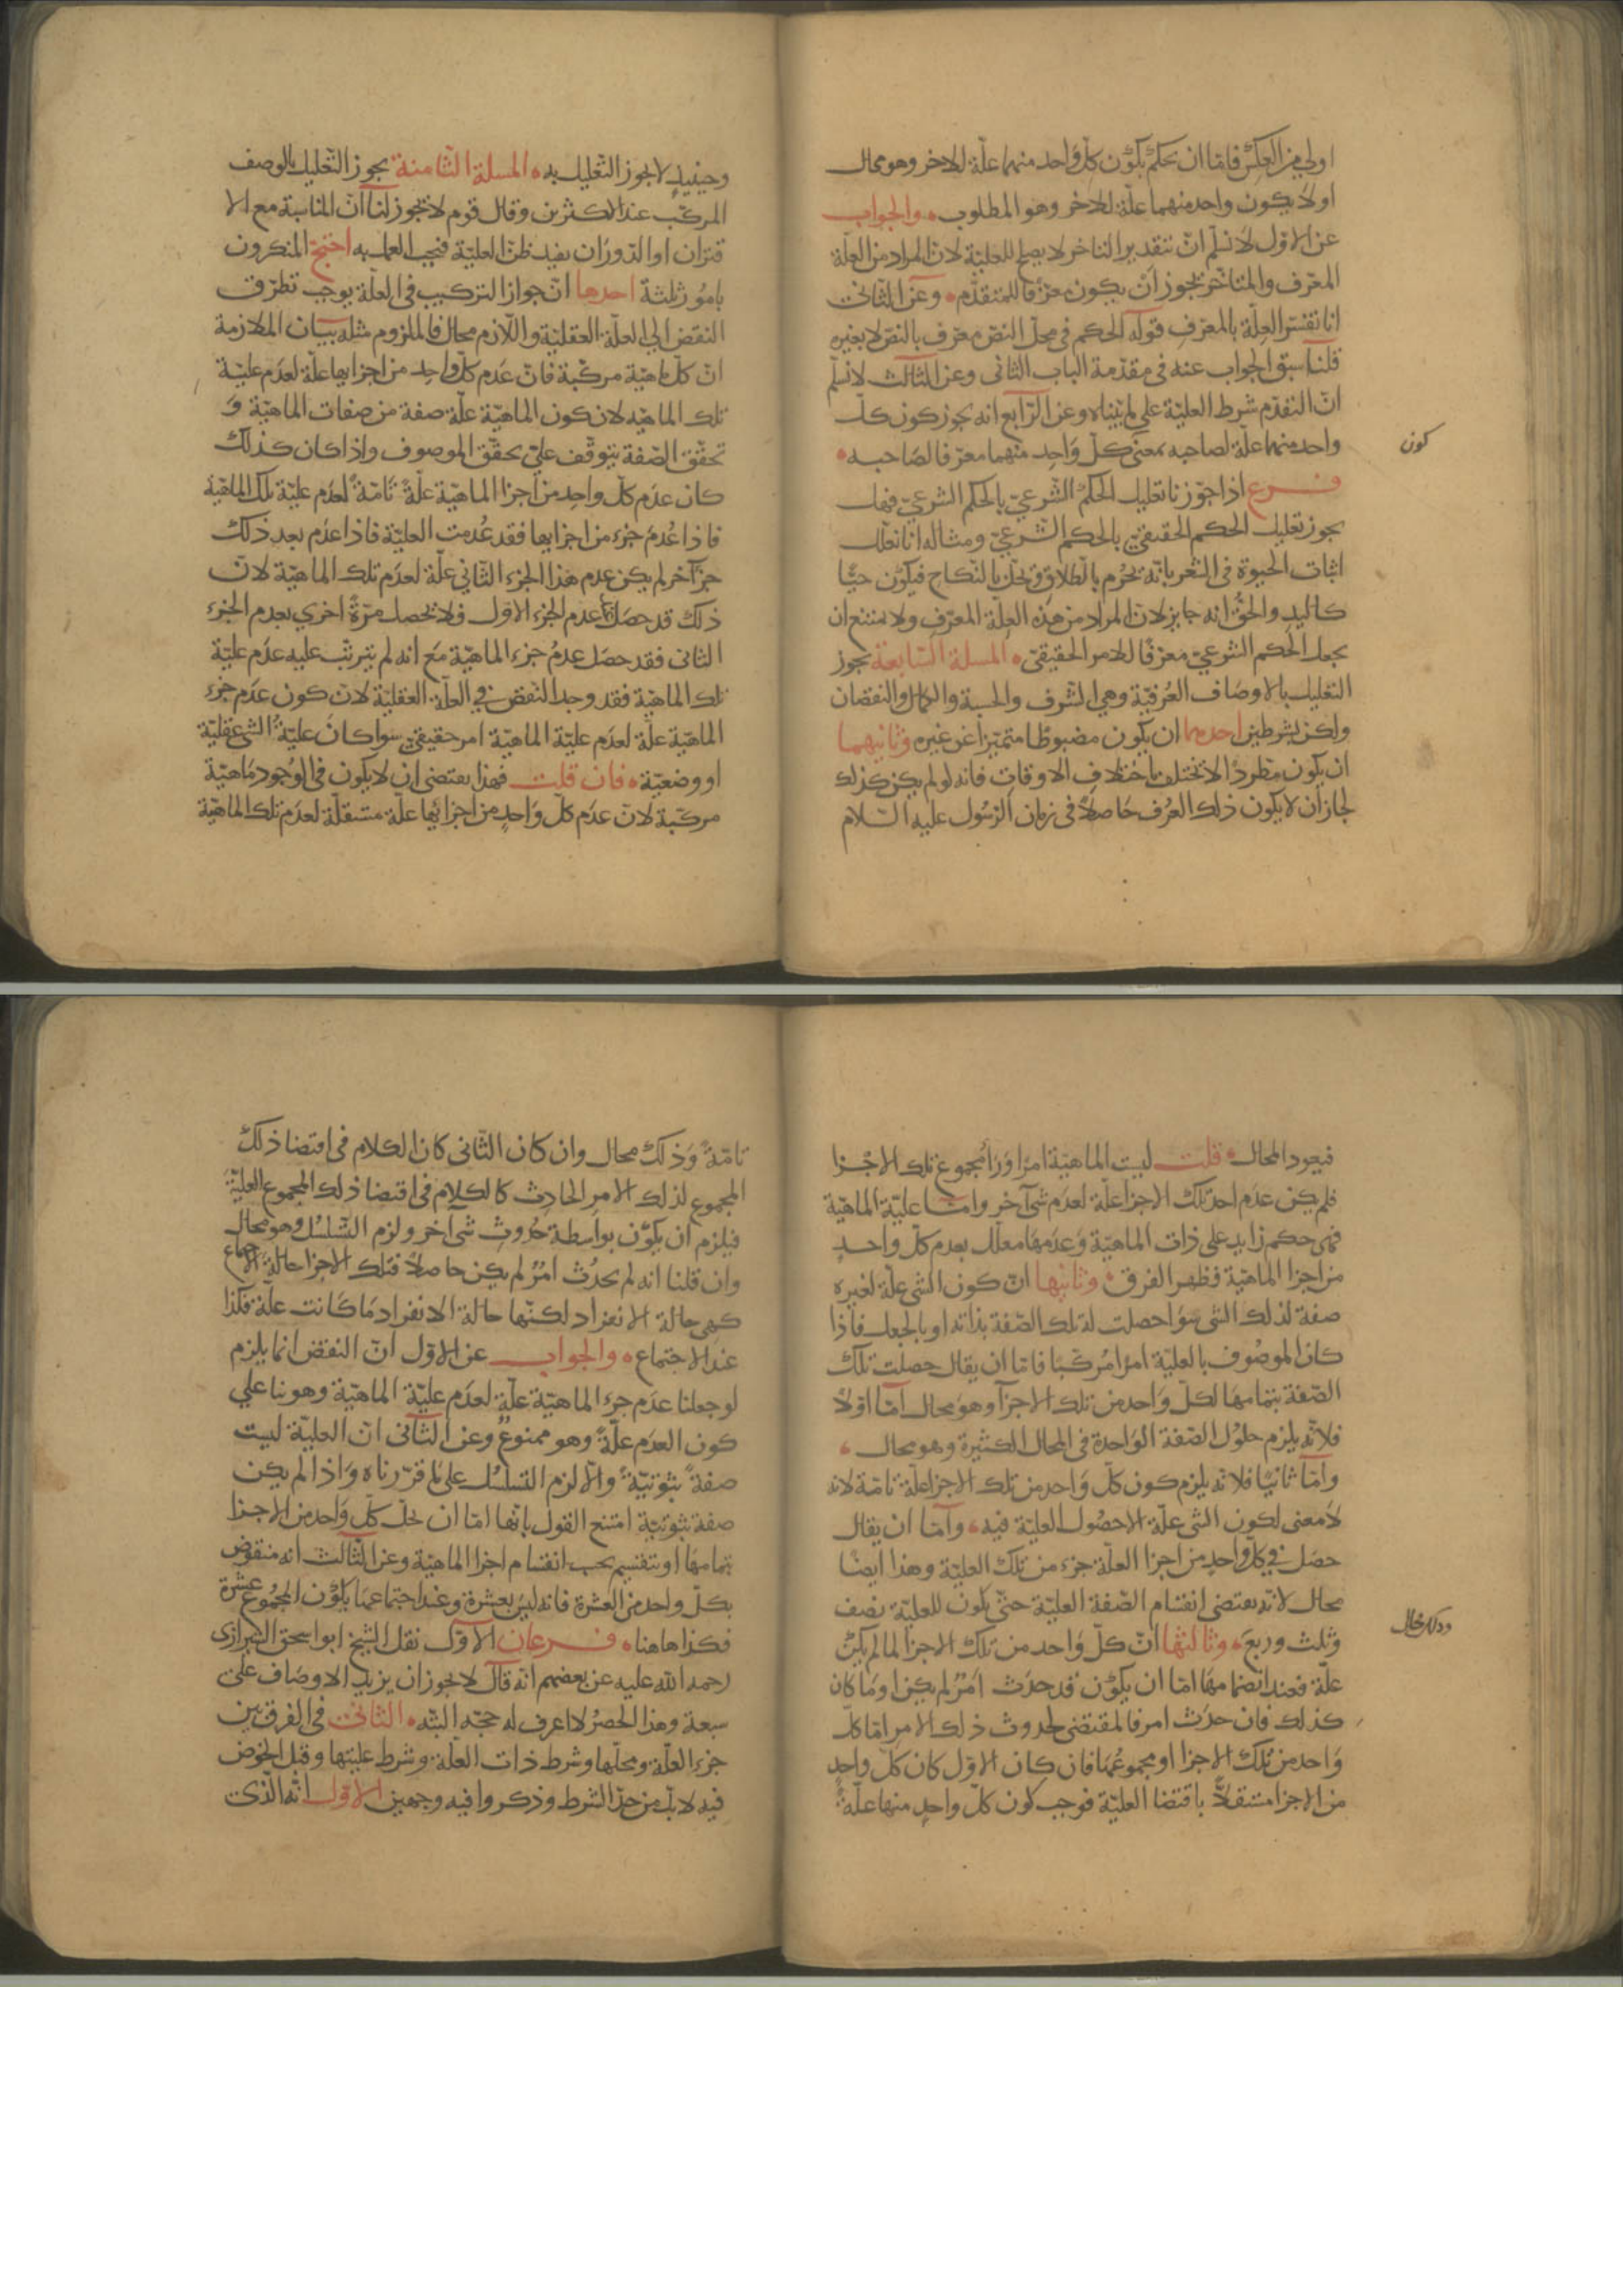 اولي من العكس فاما ان نحكم بكون كل واحد منهما علة للاخر وهو محال
او لا يكون واحد منهما علة للاخر وهو المطلوب والجواب
عن الاول لا نسلم ان بتقدير التاخر لا يصلح للعلية لان المراد من العلة
المعرف والمتاخر يجوز ان يكون معرفا للمتقدم وعن الثاني
انا نفسر العلة بالمعرف قوله الحكم في محل النص معرف بالنص لا بغيره
قلنا سبق الجواب عنه في مقدمة الباب الثاني وعن الثالث لا نسلم
ان التقدم شرط العلية علي ما بيناه وعن الرابع انه يجوز كون كل
واحد منهما علة لصاحبه بمعني كل واحد منهما معرفا لصاحبه
كون
فرع اذا جوزنا تعليل الحكم الشرعي بالحكم الشرعي فهل
يجوز تعليل الحكم الحقيقي بالحكم الشرعي ومثاله انا نعلل
اثبات الحيوة في الشعر بانه يحرم بالطلاق ويحل بالنكاح فيكون حيا
كاليد والحق انه جايز لان المراد من هذه العلة المعرف ولا يمتنع ان
يجعل الحكم الشرعي معرفا للامر الحقيقي المسلة السابعة يجوز
التعليل بالاوصاف العرفية وهي الشرف والخسة والكمال والنقصان
ولكن بشرطين احدهما ان يكون مضبوطا متميزا عن غيره وثانيهما
ان يكون مطردا لا يختلف باختلاف الاوقات فانه لو لم يكن كذلك
لجاز ان لا يكون ذلك العرف حاصلا في زمان الرسول عليه السلام
وحينيذ لا يجوز التعليل به المسلة الثامنة يجوز التعليل بالوصف
المركب عند الاكثرين وقال قوم لا يجوز لنا ان المناسبة مع الا
قتران او الدوران يفيد ظن العلية فيجب العمل به احتج المنكرون
بامور ثلثة احدها ان جواز التركيب في العلة يوجب تطرق
النقض الي العلة العقلية واللازم محال فالملزوم مثله بيان الملازمة
ان كل ماهية مركبة فان عدم كل واحد من اجزايها علة لعدم علية
تلك الماهية لان كون الماهية علة صفة من صفات الماهية و
تحقق الصفة يتوقف علي تحقق الموصوف واذا كان كذلك
كان عدم كل واحد من اجزا الماهية علة تامة لعدم علية تلك الماهية
فاذا عدم جزء من اجزايها فقد عدمت العلية فاذا عدم بعد ذلك
جزآخر لم يكن عدم هذا الجزء الثاني علة لعدم تلك الماهية لان
ذلك قد حصل عند عدم الجزء الاول فلا تحصل مرة اخري بعدم الجزء
الثاني فقد حصل عدم جزء الماهية مع انه لم يترتب عليه عدم علية
تلك الماهية فقد وجد النقض في العلة العقلية لان كون عدم جزء
الماهية علة لعدم علية الماهية امر حقيقي سوا كان علية الشي عقلية
او وضعية فان قلت فهذا يقتضي ان لا يكون في الوجود ماهية
مركبة لان عدم كل واحد من اجزائها علة مستقلة لعدم تلك الماهية
فيعود المحال قلت ليت الماهية امرا ورا مجموع تلك الاجزا
فلم يكن عدم احد تلك الاجزا علة لعدم شي آخر واما علية الماهية
فهي حكم زايد علي ذات الماهية وعدمها معلل بعدم كل واحد
من اجزا الماهية فظهر الفرق وثانيها ان كون الشي علة لغيره
صفة لذلك الشي سوا حصلت له تلك الصفة بذاته او بالجعل فاذا
كان الموصوف بالعلية امرا مركبا فاما ان يقال حصلت تلك
الصفة بتمامها لكل واحد من تلك الاجزا وهو محال اما اولا
فلانه يلزم حلول الصفة الواحدة في المحال الكثيرة وهو محال
واما ثانيا فلانه يلزم كون كل واحد من تلك الاجزا علة تامة لانه
لا معني لكون الشي علة الا حصول العلية فيه واما ان يقال
حصل في كل واحد من اجزا العلة جزء من تلك العلية وهذا ايضا
محال لانه يقتضي انقسام الصفة العلية حتي يكون للعلية نصف
وثلث وربع وثالثها ان كل واحد من تلك الاجزا لما لم يكن
علة فعند انضمامها اما ان يكون قد حدث امر لم يكن او ما كان
كذلك فان حدث امر فالمقتضي لحدوث ذلك الامر اما كل
واحد من تلك الاجزا او مجموعها فان كان الاول كان كل واحد
من الاجزا مستقلا باقتضا العلية فوجب كون كل واحد منها علة
تامة وذلك محال وان كان الثاني كان الكلام في اقتضا ذلك
المجموع لذلك الامر الحادث كالكلام في اقتضا ذلك المجموع العلية
فيلزم ان يكون بواسطة حدوث شي آخر ولزم التسلسل وهو محال
وان قلنا انه لم يحدث امر لم يكن حاصلا فتلك الاجزا حالة الاجتماع
كهي حالة الانفراد لكنها حالة الانفراد ما كانت علة فكذا
عند الاجتماع والجواب عن الاول ان النقض انما يلزم
لو جعلنا عدم جزء الماهية علة لعدم علية الماهية وهو بنا علي
كون العدم علة وهو ممنوع وعن الثاني ان العلية ليست
صفة ثبوتية والا لزم التسلسل علي ما قررناه واذا لم يكن
صفة ثبوتية امتنع القول بانها اما ان تحل كل واحد من الاجزا
بتمامها او تنقسم بحسب انقسام اجزا الماهية وعن الثالث انه منقوض
بكل واحد من العشرة فانه ليس بعشرة وعند اجتماعها يكون المجموع عشرة
فكذا هاهنا فرعان الاول نقل الشيخ ابو اسحق الشيرازي
رحمة الله عليه عن بعضهم انه قال لا يجوز ان يزيد الاوصاف علي
سبعة وهذا الحصر لا اعرف له حجة البتة الثاني في الفرق بين
جزء العلة ومحلها وشرط ذات العلة وشرط عليتها وقبل الخوض
فيه لا بد من حد الشرط وذكروا فيه وجهين الاول انه الذي